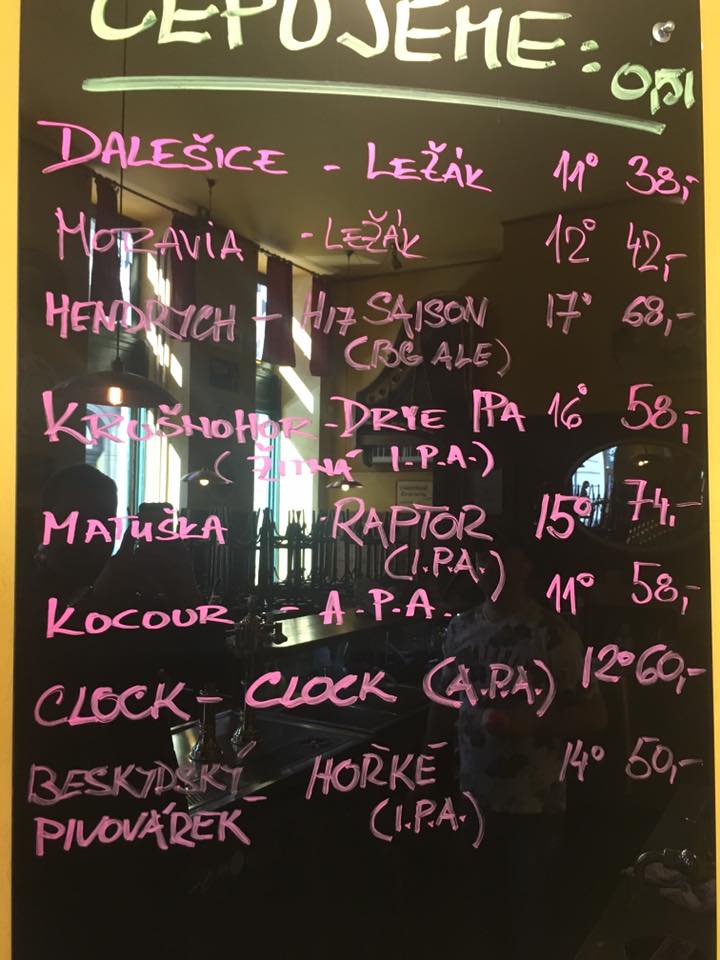 ČEPUJEME: 0,5l
DALEŠICE - LEŽÁK 11° 38,-
MORAVIA - LEŽÁK 12° 42,-
HENDRYCH - H17 SAISON 17° 68,-
(BG ALE)
KRUŠNOHOR - DRYE IPA 16° 58,-
(ŽITNÁ I.P.A.)
MATUŠKA - RAPTOR 15° 74,-
(I.P.A.)
KOCOUR - A.P.A. 11° 58,-
CLOCK - CLOCK (A.P.A.) 12° 60,-
BESKYDSKÝ - HOŘKÉ 14° 50,-
PIVOVÁREK (I.P.A.)